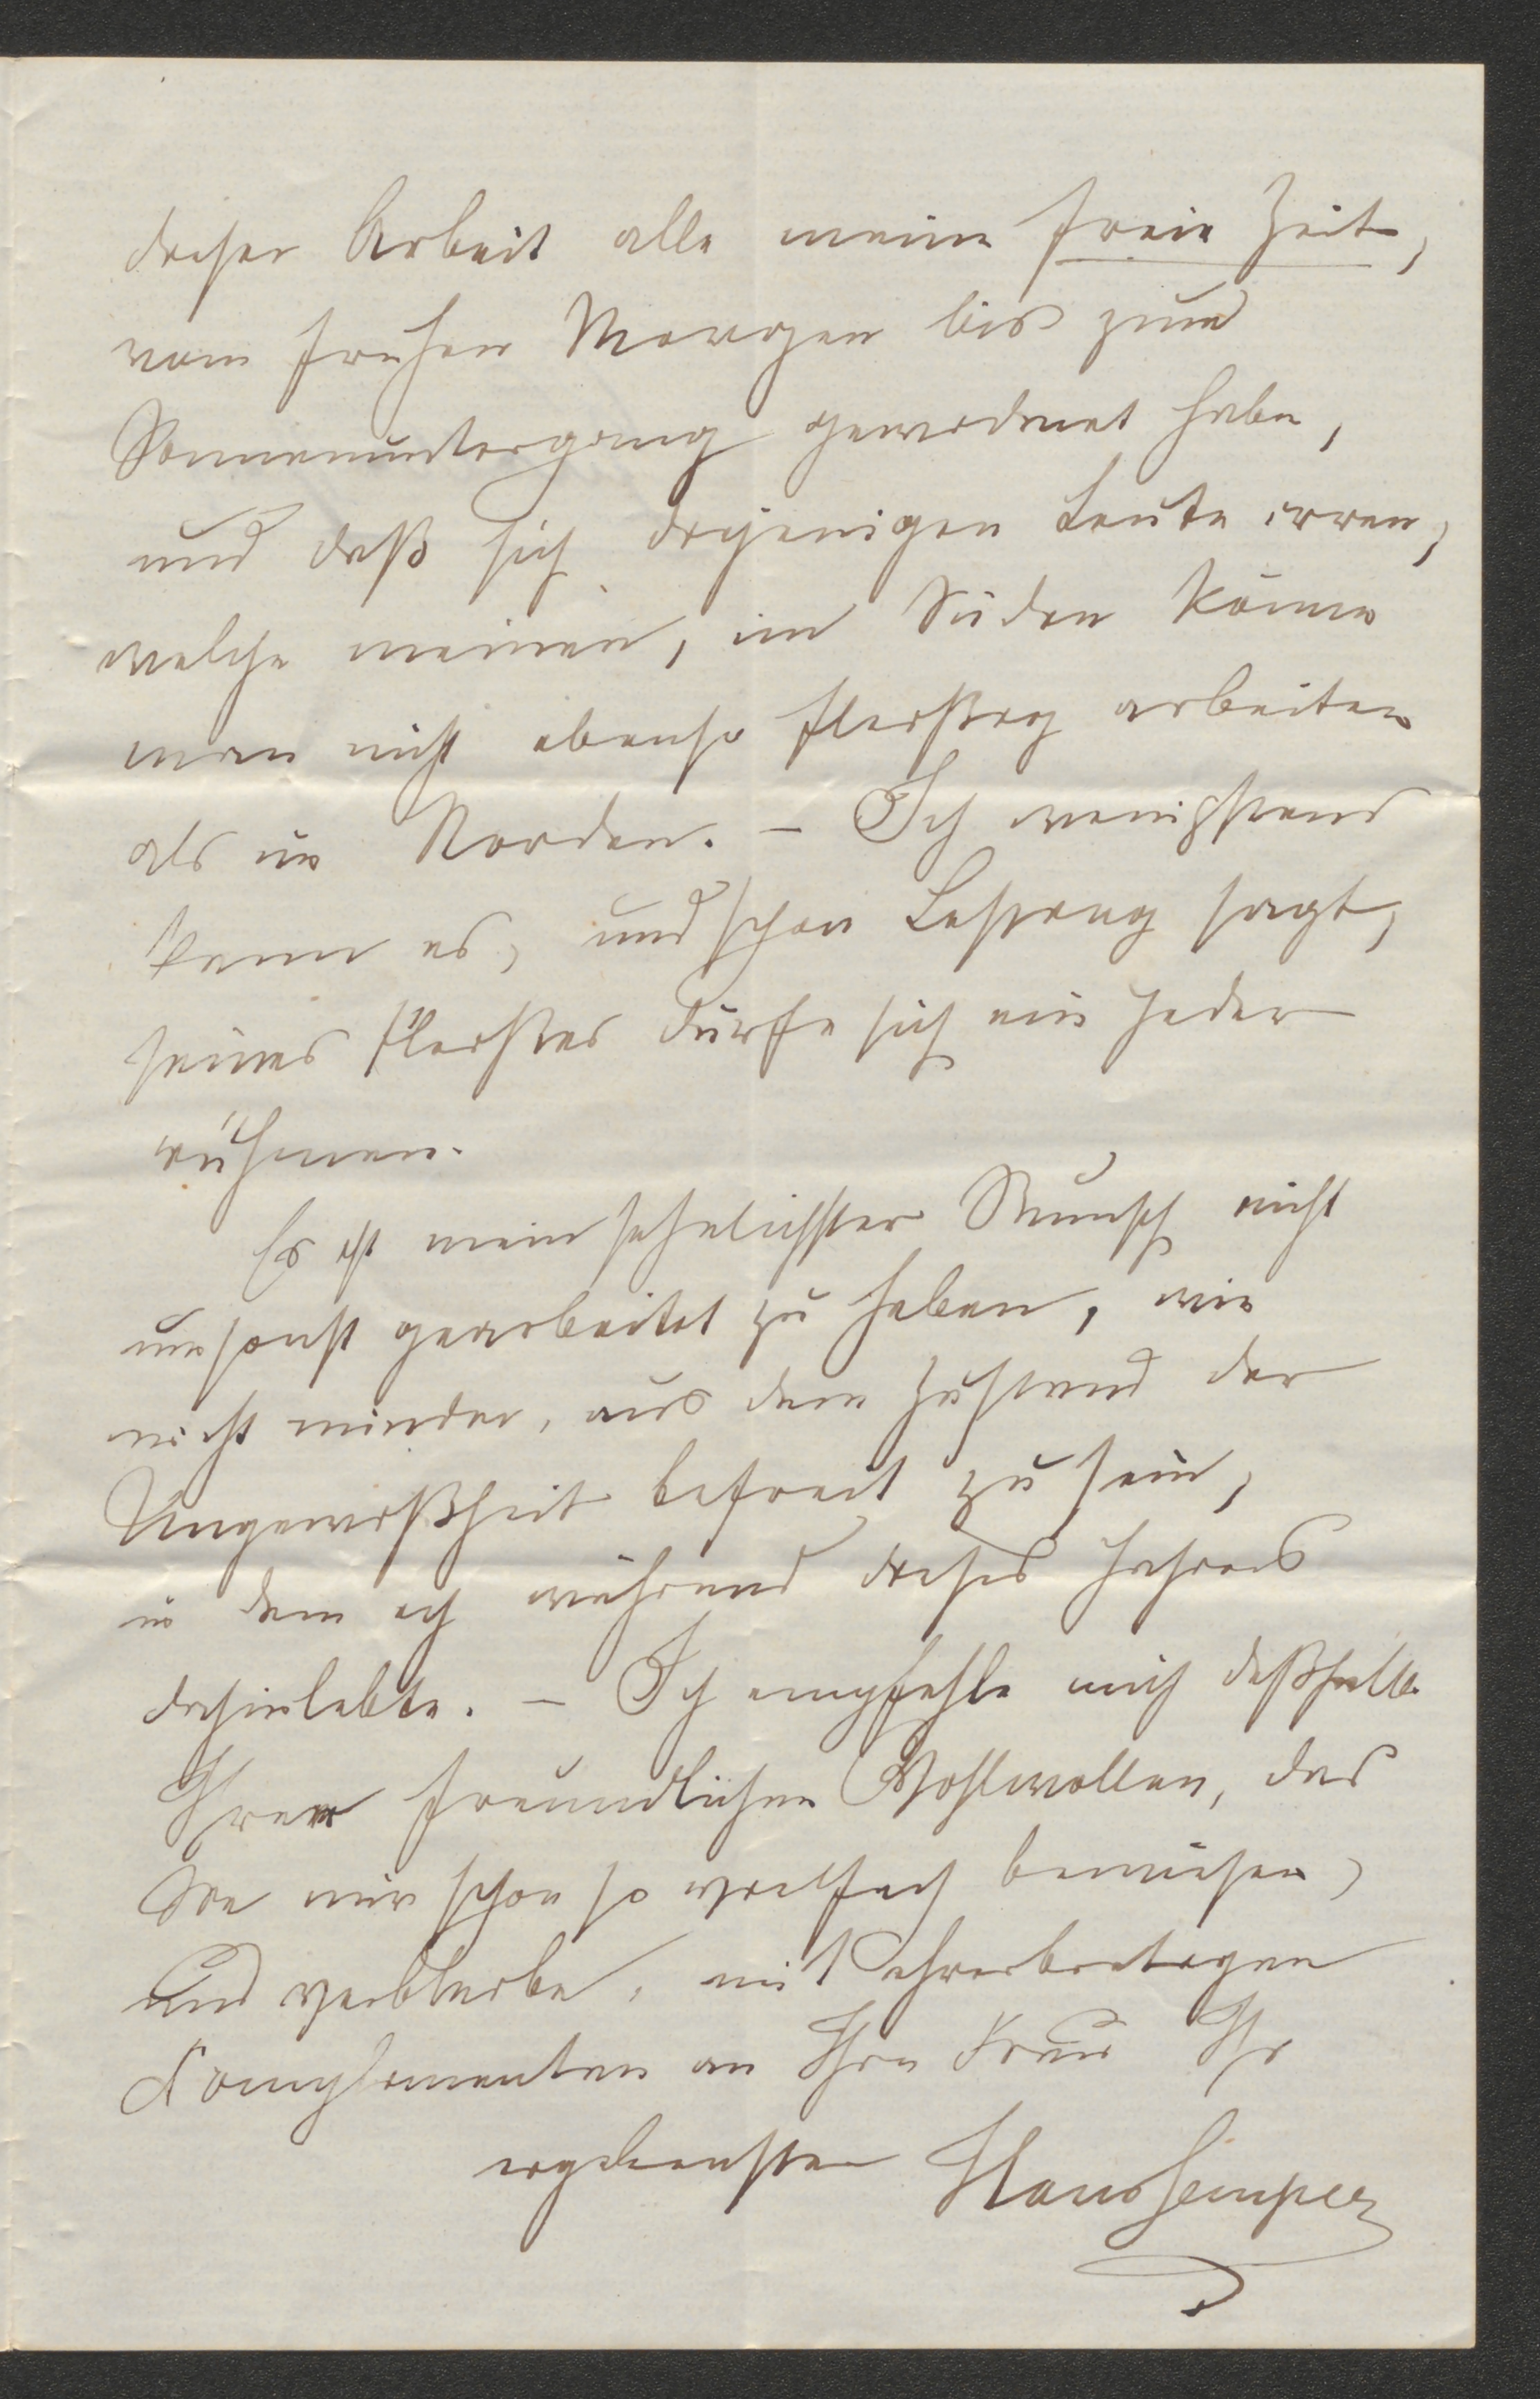 dieser Arbeit alle meine freie Zeit,
vom frühen Morgen bis zum
Sonnenuntergang gewidmet habe,
und daß sich diejenigen Leute irren,
welche meinen, im Süden könne
man nicht ebenso fleißig arbeiten
als im Norden. – Ich wenigstens
kann es, und schon Lessing sagt,
seines Fleißes dürfe sich ein Jeder
rühmen.
Es ist mein sehnlichster Wunsch nicht
umsonst gearbeitet zu haben, wie
nicht minder, aus dem Zustand der
Ungewißheit befreit zu sein,
in dem ich während dieses Jahres
dahinlebte. – Ich empfehle mich deßhalb
Ihrem freundlichen Wohlwollen, das
Sie mir schon so vielfach bewiesen,
und verbleibe, mit ehrerbietigen
Complimenten an Ihre Frau Ihr
ergebenster Hans Semper